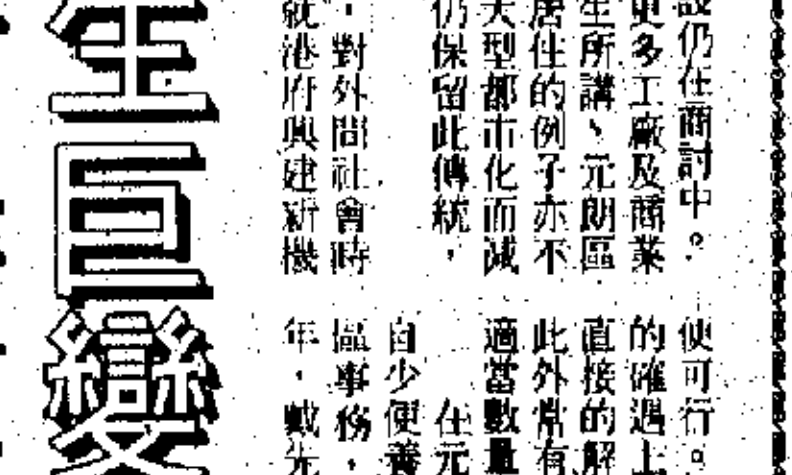 設仍在商討中。
更多工廠及商業
生所講、元朗區
居住的例子亦不
大型都市化而減
仍保留此傳統，
，對外間社會時
就港府興建新機
便可行。
的確遇上
直接的解
此外常有
適當數量
在元
自少便養
區事務，
年，戴先
生巨變